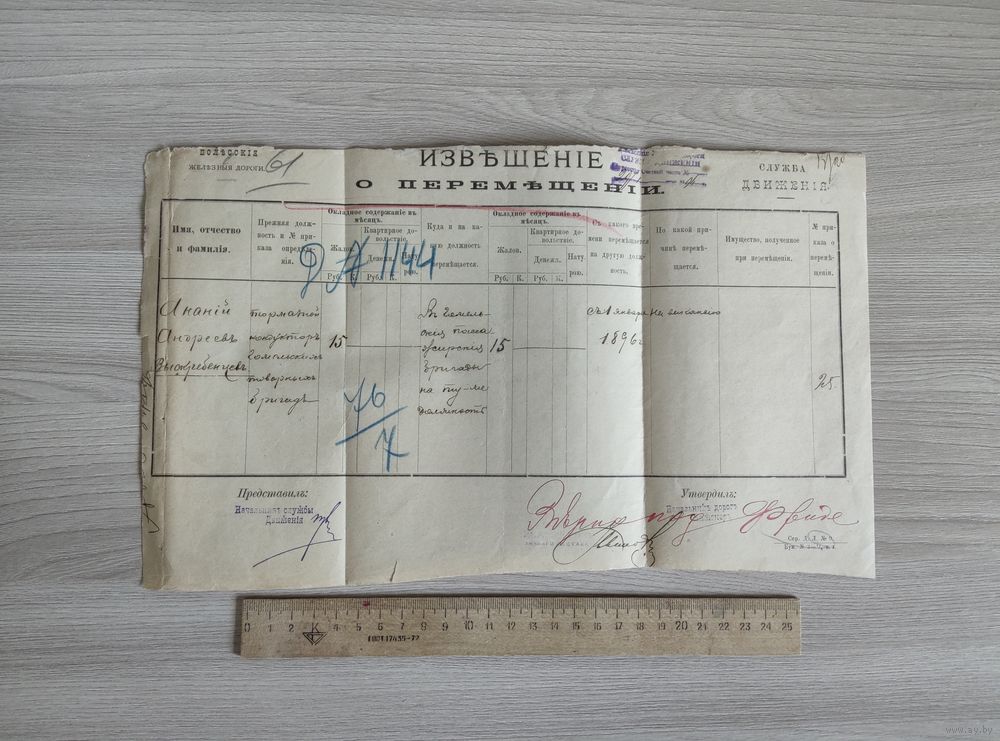 ПОЛѢССКІЯ
ЖЕЛѢЗНЫЯ ДОРОГИ.
61
ИЗВѢЩЕНІЕ
О ПЕРЕМѢЩЕНІИ.
СЛУЖБА
ДВИЖЕНІЯ
Имя, отчество
и фамилія.
Прежняя долж-
ность и № при-
каза опредѣле-
нія.
Окладное содержаніе въ
мѣсяцъ.
Жалов.
Квартирное до-
вольствіе.
Денежн.
Нату-
рою.
Руб.
К.
Руб.
К.
Куда и на ка-
кую должность
перемѣщается.
Окладное содержаніе въ
мѣсяцъ.
Жалов.
Квартирное до-
вольствіе.
Денежн.
Нату-
рою.
Руб.
К.
Руб.
К.
Съ какого вре-
мени перемѣщается
на другую долж-
ность.
По какой при-
чинѣ перемѣ-
щается.
Имущество, полученное
при перемѣщеніи.
№ прика-
за о
перемѣ-
щеніи.
Д № 1144
Ананій
Андреевъ
Выскребенцевъ
тормазной
кондукторъ
Гомельскихъ
товарныхъ
бригадъ
15
Въ Гомель-
скія пасса-
жирскія
бригады
на ту-же
должность
15
съ 1 января
1896 г
25
76/7
Представилъ:
Начальникъ службы
Движенія
Утвердилъ:
Начальникъ дороги
Вѣрно
Сер. X. Л. № 9.
0 1 2 3 4 5 6 7 8 9 10 11 12 13 14 15 16 17 18 19 20 21 22 23 24 25
ГОСТ 17435-72
www.ay.by